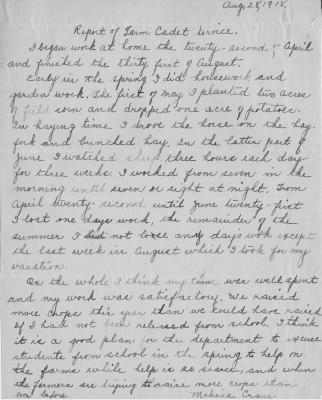 Aug. 28, 1918.
Report of Farm Cadet Service.
I began work at home the twenty-second of April
and finished the thirty first of August.
Early in the spring I did housework and
garden work. The first of May I planted two acres
of field corn and dropped one acre of potatoes.
In haying time I drove the horse on the hay-
fork and bunched hay. In the latter part of
June I watched sheep, three hours each day
for three weeks. I worked from seven in the
morning until seven or eight at night. From
April twenty-second until June twenty-first
I lost one days work, the remainder of the
summer I did not loose any day's work except
the last week in August which I took for my
vacation.
On the whole I think my time was well spent
and my work was satisfactory. We raised
more crops this year than we could have raised
if I had not been released from school. I think
it is a good plan for the department to excuse
students from school in the spring to help on
the farms while help is so scarce, and when
the farmers are trying to raise more crops than
ever before. Crane